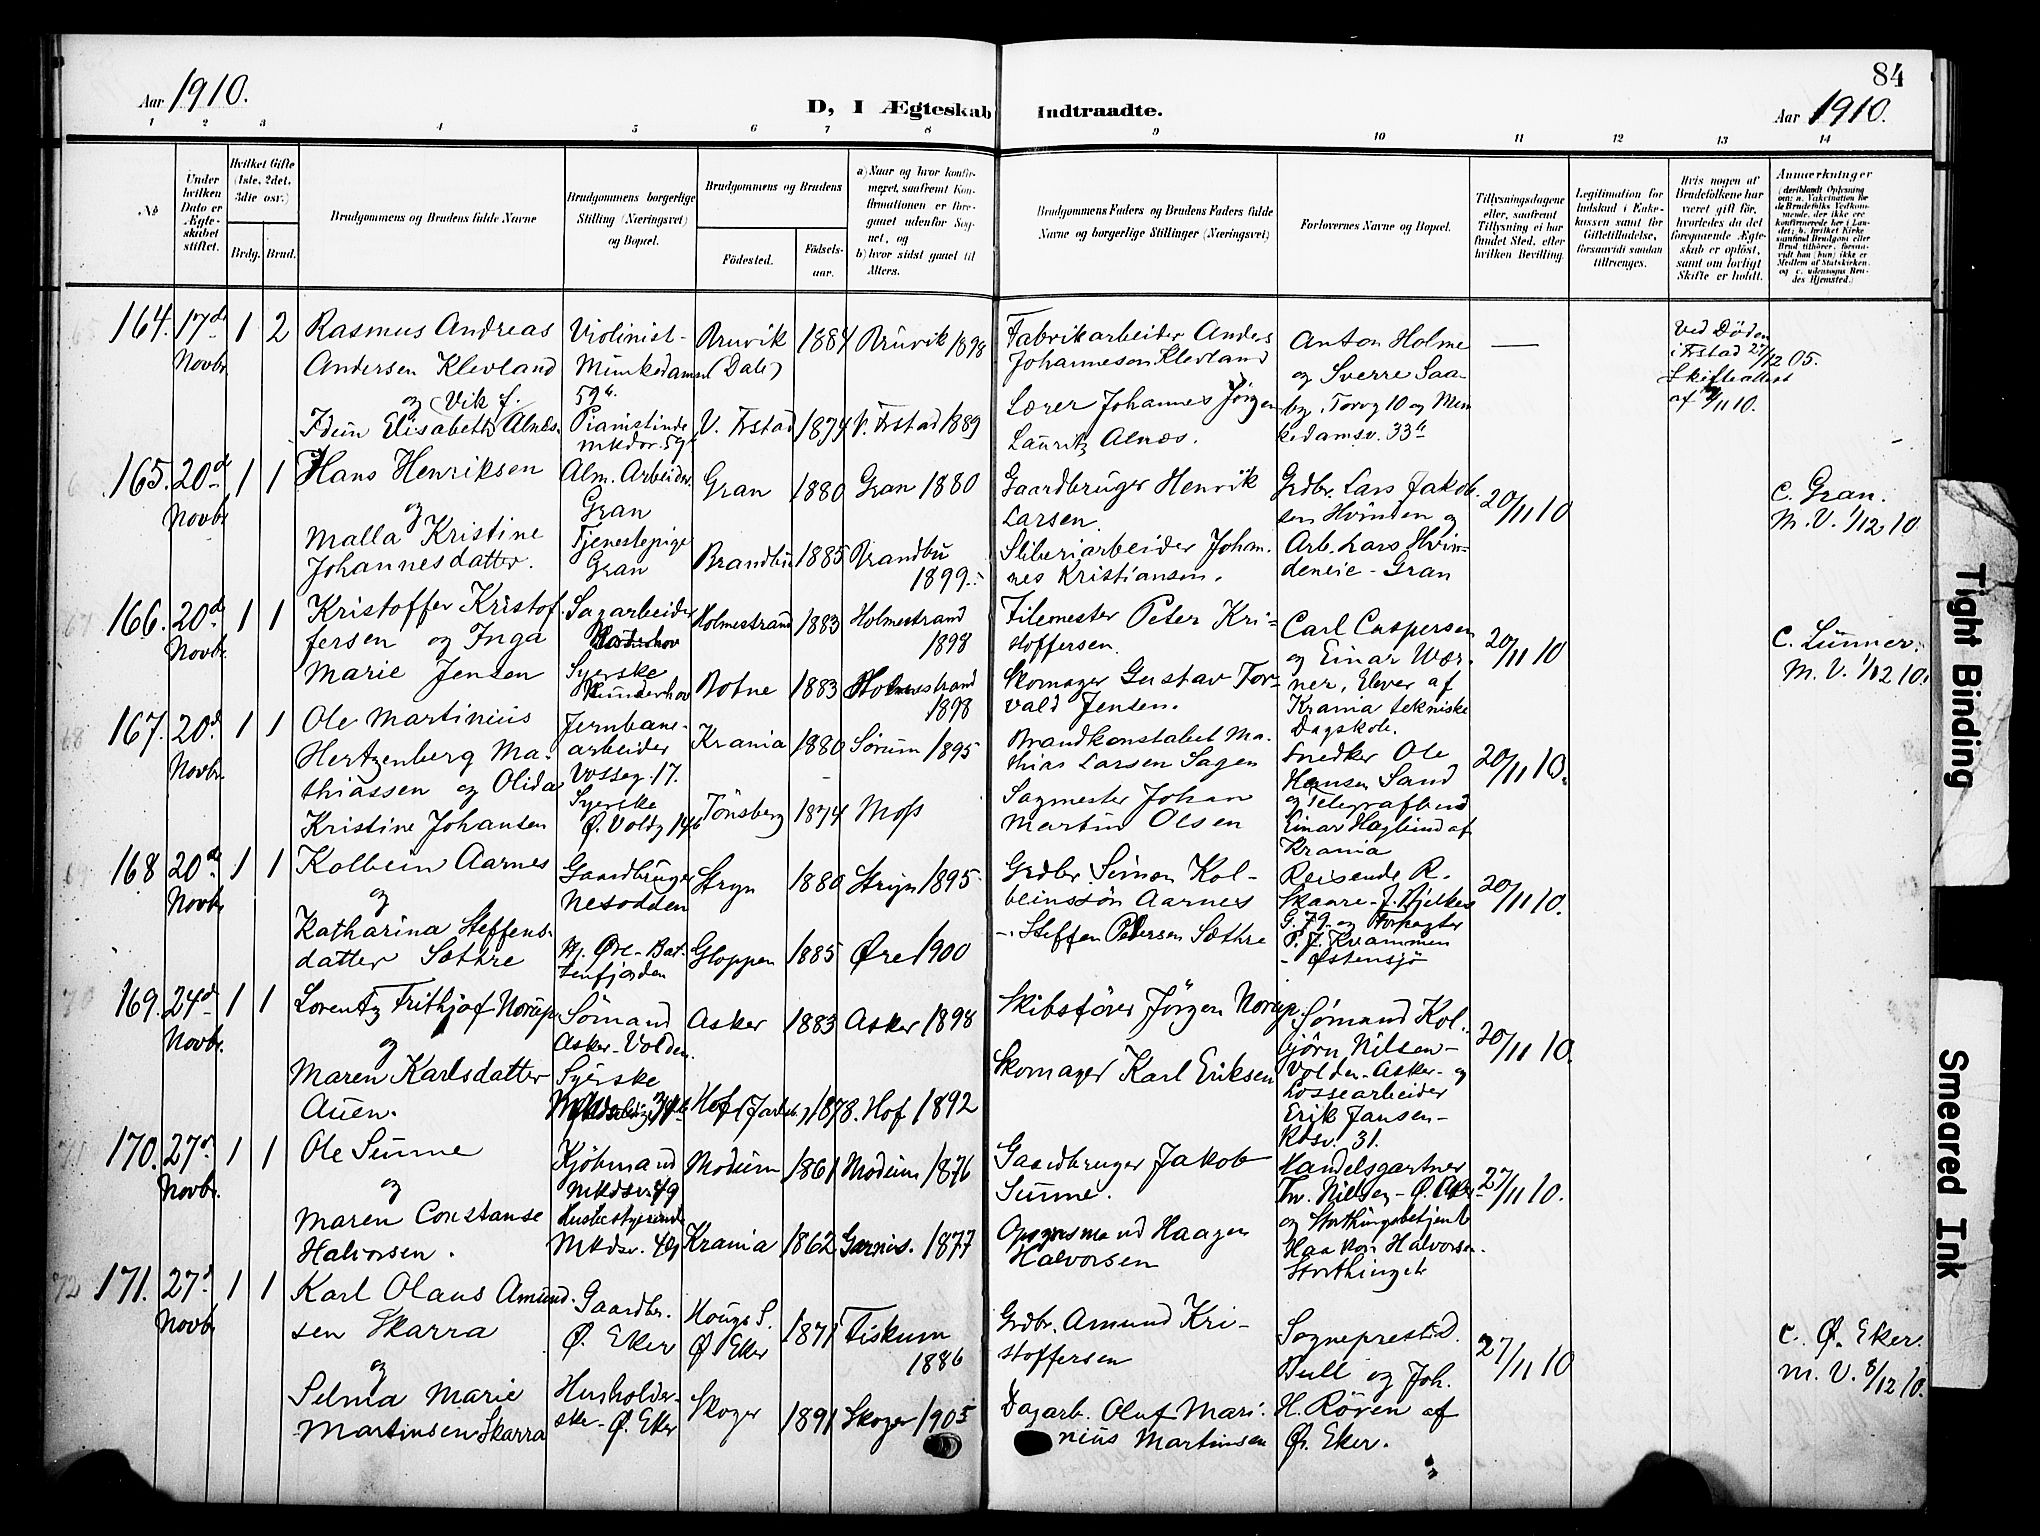 84
Aar 1910.
D, I Ægteskab Indtraadte.
Aar 1910.
1 2 3 4 5 6 7 8 9 10 11 12 13 14
No
Under hvilken Dato er Ægteskabet stiftet.
Hvilket Gifte (1ste, 2det, 3die osv.)
Brdg. Brud.
Brudgommens og Brudens fulde Navne
Brudgommens borgerlige Stilling (Næringsvei) og Bopæl.
Brudgommens og Brudens
Fødested.
Fødselsaar.
a) Naar og hvor konfirmeret, saafremt Konfirmationen er foregaaet udenfor Sognet, og
b) hvor sidst gaaet til Alters.
Brudgommens Faders og Brudens Faders fulde Navne og borgerlige Stillinger (Næringsvei)
Forlovernes Navne og Bopæl.
Tillysningsdagene eller, saafremt Tillysning ei har fundet Sted, efter hvilken Bevilling.
Legitimation for Indskud i Enkekassen samt for Giftetilladelse, forsaavidt saadan tiltrænges.
Hvis nogen af Brudefolkene har været gift før, hvorledes da det foregaaende Ægteskab er opløst, samt om lovligt Skifte er holdt.
Anmærkninger
164. 17de Novbr. 1 2
Rasmus Andreas
Andersen Klevland
og Vik f.
Elisabeth Alnæs.
Violinist
59b.
Pianistinde
Bruvik (Dale) 1884 Bruvik 1898
V. Frstad 1874 V. Frstad 1889
Fabrikarbeider Anders
Johanneson Klevland
Lærer Johannes Jörgen
Lauritz Alnæs.
Anton Holme
og Sverre Saa-
by, Torvg 10 og Mun
kedamsv. 33
—
Ved Døden
i Frstad 27/12 05.
Skifteattest
af /11 10.
165. 20de Novbr 1 1
Hans Henriksen
og
Malla Kristine
Johannesdatter.
Alm. Arbeider.
Gran
Tjenestepige
Gran
Gran 1880 Gran 1880
Brandbu 1885 Brandbu
1899.
Gaardbruger Henrik
Larsen.
Sliberiarbeider Johan-
nes Kristiansen.
Grdbr. Lars Jakob-
sen Hvinden og
Arb. Lars Hvin-
deneie - Gran
20/11 10
c. Gran.
M. V. 1/12 10.
166. 20de Novbr. 1 1
Kristoffer Kristof-
fersen og Inga
Marie Jensen
Sagarbeider
Syerske
Holmestrand 1883 Holmestrand
1898
Botne 1883 Holmestrand
1898
Filemester Peter Kri-
stoffersen.
Skomager Gustav Tor-
vald Jensen.
Carl Caspersen
og Einar Wær-
ner, Elever af
Krania tekniske
Dagskole.
20/11 10
c. Lunner.
M. V. 1/12 10.
167. 20de Novbr. 1 1
Ole Martinius
Hertzenberg Ma-
thiassen og Olida
Kristine Johansen
Jernbane-
arbeider
Vosseg. 17.
Syerske
Ø. Voldg 14b
Krania 1880 Sørum 1895
Tönsberg 1874 Moss
Brandkonstabel Ma-
thias Larsen Sagen
Sagmester Johan
Martin Olsen
Snedker Ole
Hansen Sand
og Telegrafbud
Einar Haglund af
Krania
20/11 10.
168 20de Novbr 1 1
Kolbein Aarnes
og
Katharina Steffens-
datter Sæthre
Gaardbruger
Nesodden
Øre-Bat-
tenfjorden
Stryn 1880 Stryn 1895
Gloppen 1885 Øre 1900
Grdbr. Simon Kol-
beinssön Aarnes
-. Steffen Petersen Sæthre
Reisende R.
Skaare - J. Hjelkes
G. 79. og Forpagter
P. J. Krammen
- Østensjø
20/11 10.
169. 24de Novbr. 1 1
Lorentz Frithjof Norup
og
Maren Karlsdatter
Auen.
Sømand
Asker-Volden.
Syerske
Asker 1883 Asker 1898
Hof (Jarlsb.) 1878. Hof 1892
Skibsfører Jörgen Norup.
Skomager Karl Eriksen
Sømand Kol-
björn Nilsen -
Volden - Asker - og
Lossearbeider
Erik Jansen -
Rosv. 31.
20/11 10.
170. 27de Novbr. 1 1
Ole Sunne
og
Maren Constanse
Halvorsen.
Kjöbmand
Mkdsv. 49
Husbestyrerinde
Mkdsv. 49
Modum 1861 Modum 1876
Krania 1862 Garnis. 1877
Gaardbruger Jakob
Sunne.
Opsynsmand Haagen
Halvorsen
Handelsgartner
Thv. Nielsen - Ø. Aker
og Storthingsbetjent
Haakon Halvorsen.
Storthinget
27/11 10.
171. 27de Novbr 1 1
Karl Olaus Amund-
sen Skarra
og
Selma Marie
Martinsen Skarra
Gaardbr.
Ø. Eker
Husholder-
ske - Ø. Eker
Hougs S.
Ø. Eker 1871 Fiskum
1886
Skoger 1891 Skoger 1905
Grdbr. Amund Kri-
stoffersen
Dagarb. Oluf Mari-
nius Martinsen
Sogneprest D.
Bull og Joh.
H. Røren af
Ø. Eker.
27/11 10
c. Ø. Eker.
M. V. 8/12 10.
Tight Binding
Smeared Ink